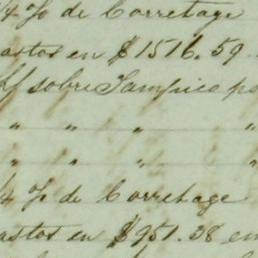 /4 % de Corretage
astos en $1516.59
sobre Tampico po
" " " "
" " " "
/4 % de Corretage
astos en $951.38 em